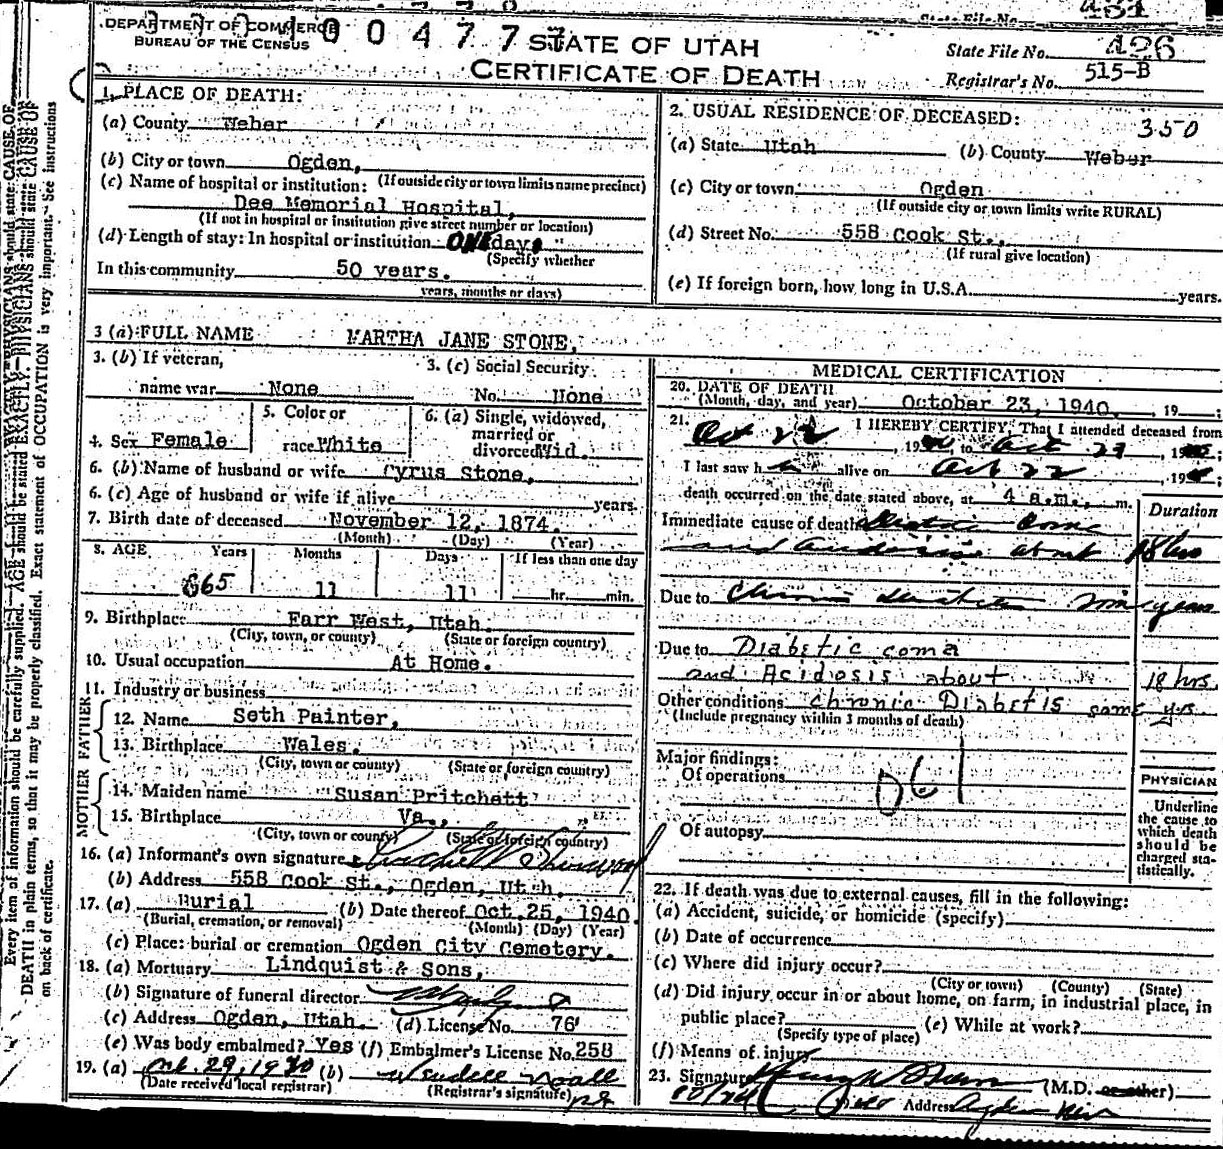 DEPARTMENT OF COMMERCE
BUREAU OF THE CENSUS
0 0 4 7 7
STATE OF UTAH
CERTIFICATE OF DEATH
State File No. 426
Registrar's No. 515-B
1. PLACE OF DEATH:
(a) County Weber
(b) City or town Ogden,
(If outside city or town limits name precinct)
(c) Name of hospital or institution:
Dee Memorial Hospital,
(If not in hospital or institution give street number or location)
(d) Length of stay: In hospital or institution ONE day,
(Specify whether
In this community 50 years.
years, months or days)
2. USUAL RESIDENCE OF DECEASED:
350
(a) State Utah (b) County Weber
(c) City or town Ogden
(If outside city or town limits write RURAL)
(d) Street No. 558 Cook St.,
(If rural give location)
(e) If foreign born, how long in U.S.A. years.
3 (a) FULL NAME MARTHA JANE STONE,
3. (b) If veteran,
name war None
3. (c) Social Security
No. None
4. Sex Female
5. Color or
race White
6. (a) Single, widowed,
married or
divorced Wid.
6. (b) Name of husband or wife Cyrus Stone,
6. (c) Age of husband or wife if alive years.
7. Birth date of deceased November 12, 1874.
(Month) (Day) (Year)
8. AGE Years Months Days If less than one day
665 11 11 hr. min.
9. Birthplace Farr West, Utah.
(City, town, or county) (State or foreign country)
10. Usual occupation At Home.
11. Industry or business
FATHER
12. Name Seth Painter,
13. Birthplace Wales.
(City, town or county) (State or foreign country)
MOTHER
14. Maiden name Susan Pritchett
15. Birthplace Va.,
(City, town or county) (State or foreign country)
16. (a) Informant's own signature
(b) Address 558 Cook St., Ogden, Utah.
17. (a) Burial (b) Date thereof Oct. 25, 1940.
(Burial, cremation, or removal) (Month) (Day) (Year)
(c) Place: burial or cremation Ogden City Cemetery.
18. (a) Mortuary Lindquist & Sons,
(b) Signature of funeral director
(c) Address Ogden, Utah. (d) License No. 76
(e) Was body embalmed? Yes (f) Embalmer's License No. 258
19. (a) 29, 1940 (b) Wendell Noall
(Date received local registrar) (Registrar's signature)
MEDICAL CERTIFICATION
20. DATE OF DEATH
(Month, day, and year) October 23, 1940, 19 ;
21. I HEREBY CERTIFY, That I attended deceased from
Oct 22, 19 to Oct 23, 19 ;
I last saw h alive on Oct 22, 19 ;
death occurred on the date stated above, at 4 a.m., m.
Duration
Immediate cause of death Diabetic Coma
and Acidosis about 18 hrs
Due to Chronic diabetes some years
Due to Diabetic coma
and Acidosis about 18 hrs.
Other conditions chronic Diabetis some yrs
(Include pregnancy within 3 months of death)
Major findings:
Of operations
D61
Of autopsy
PHYSICIAN
Underline
the cause to
which death
should be
charged sta-
tistically.
22. If death was due to external causes, fill in the following:
(a) Accident, suicide, or homicide (specify)
(b) Date of occurrence
(c) Where did injury occur?
(City or town) (County) (State)
(d) Did injury occur in or about home, on farm, in industrial place, in
public place? (e) While at work?
(Specify type of place)
(f) Means of injury
23. Signature (M.D. or other)
Address Ogden
Every item of information should be carefully supplied. AGE should be stated EXACTLY. PHYSICIANS should state CAUSE OF
DEATH in plain terms, so that it may be properly classified. Exact statement of OCCUPATION is very important. See instructions
on back of certificate.